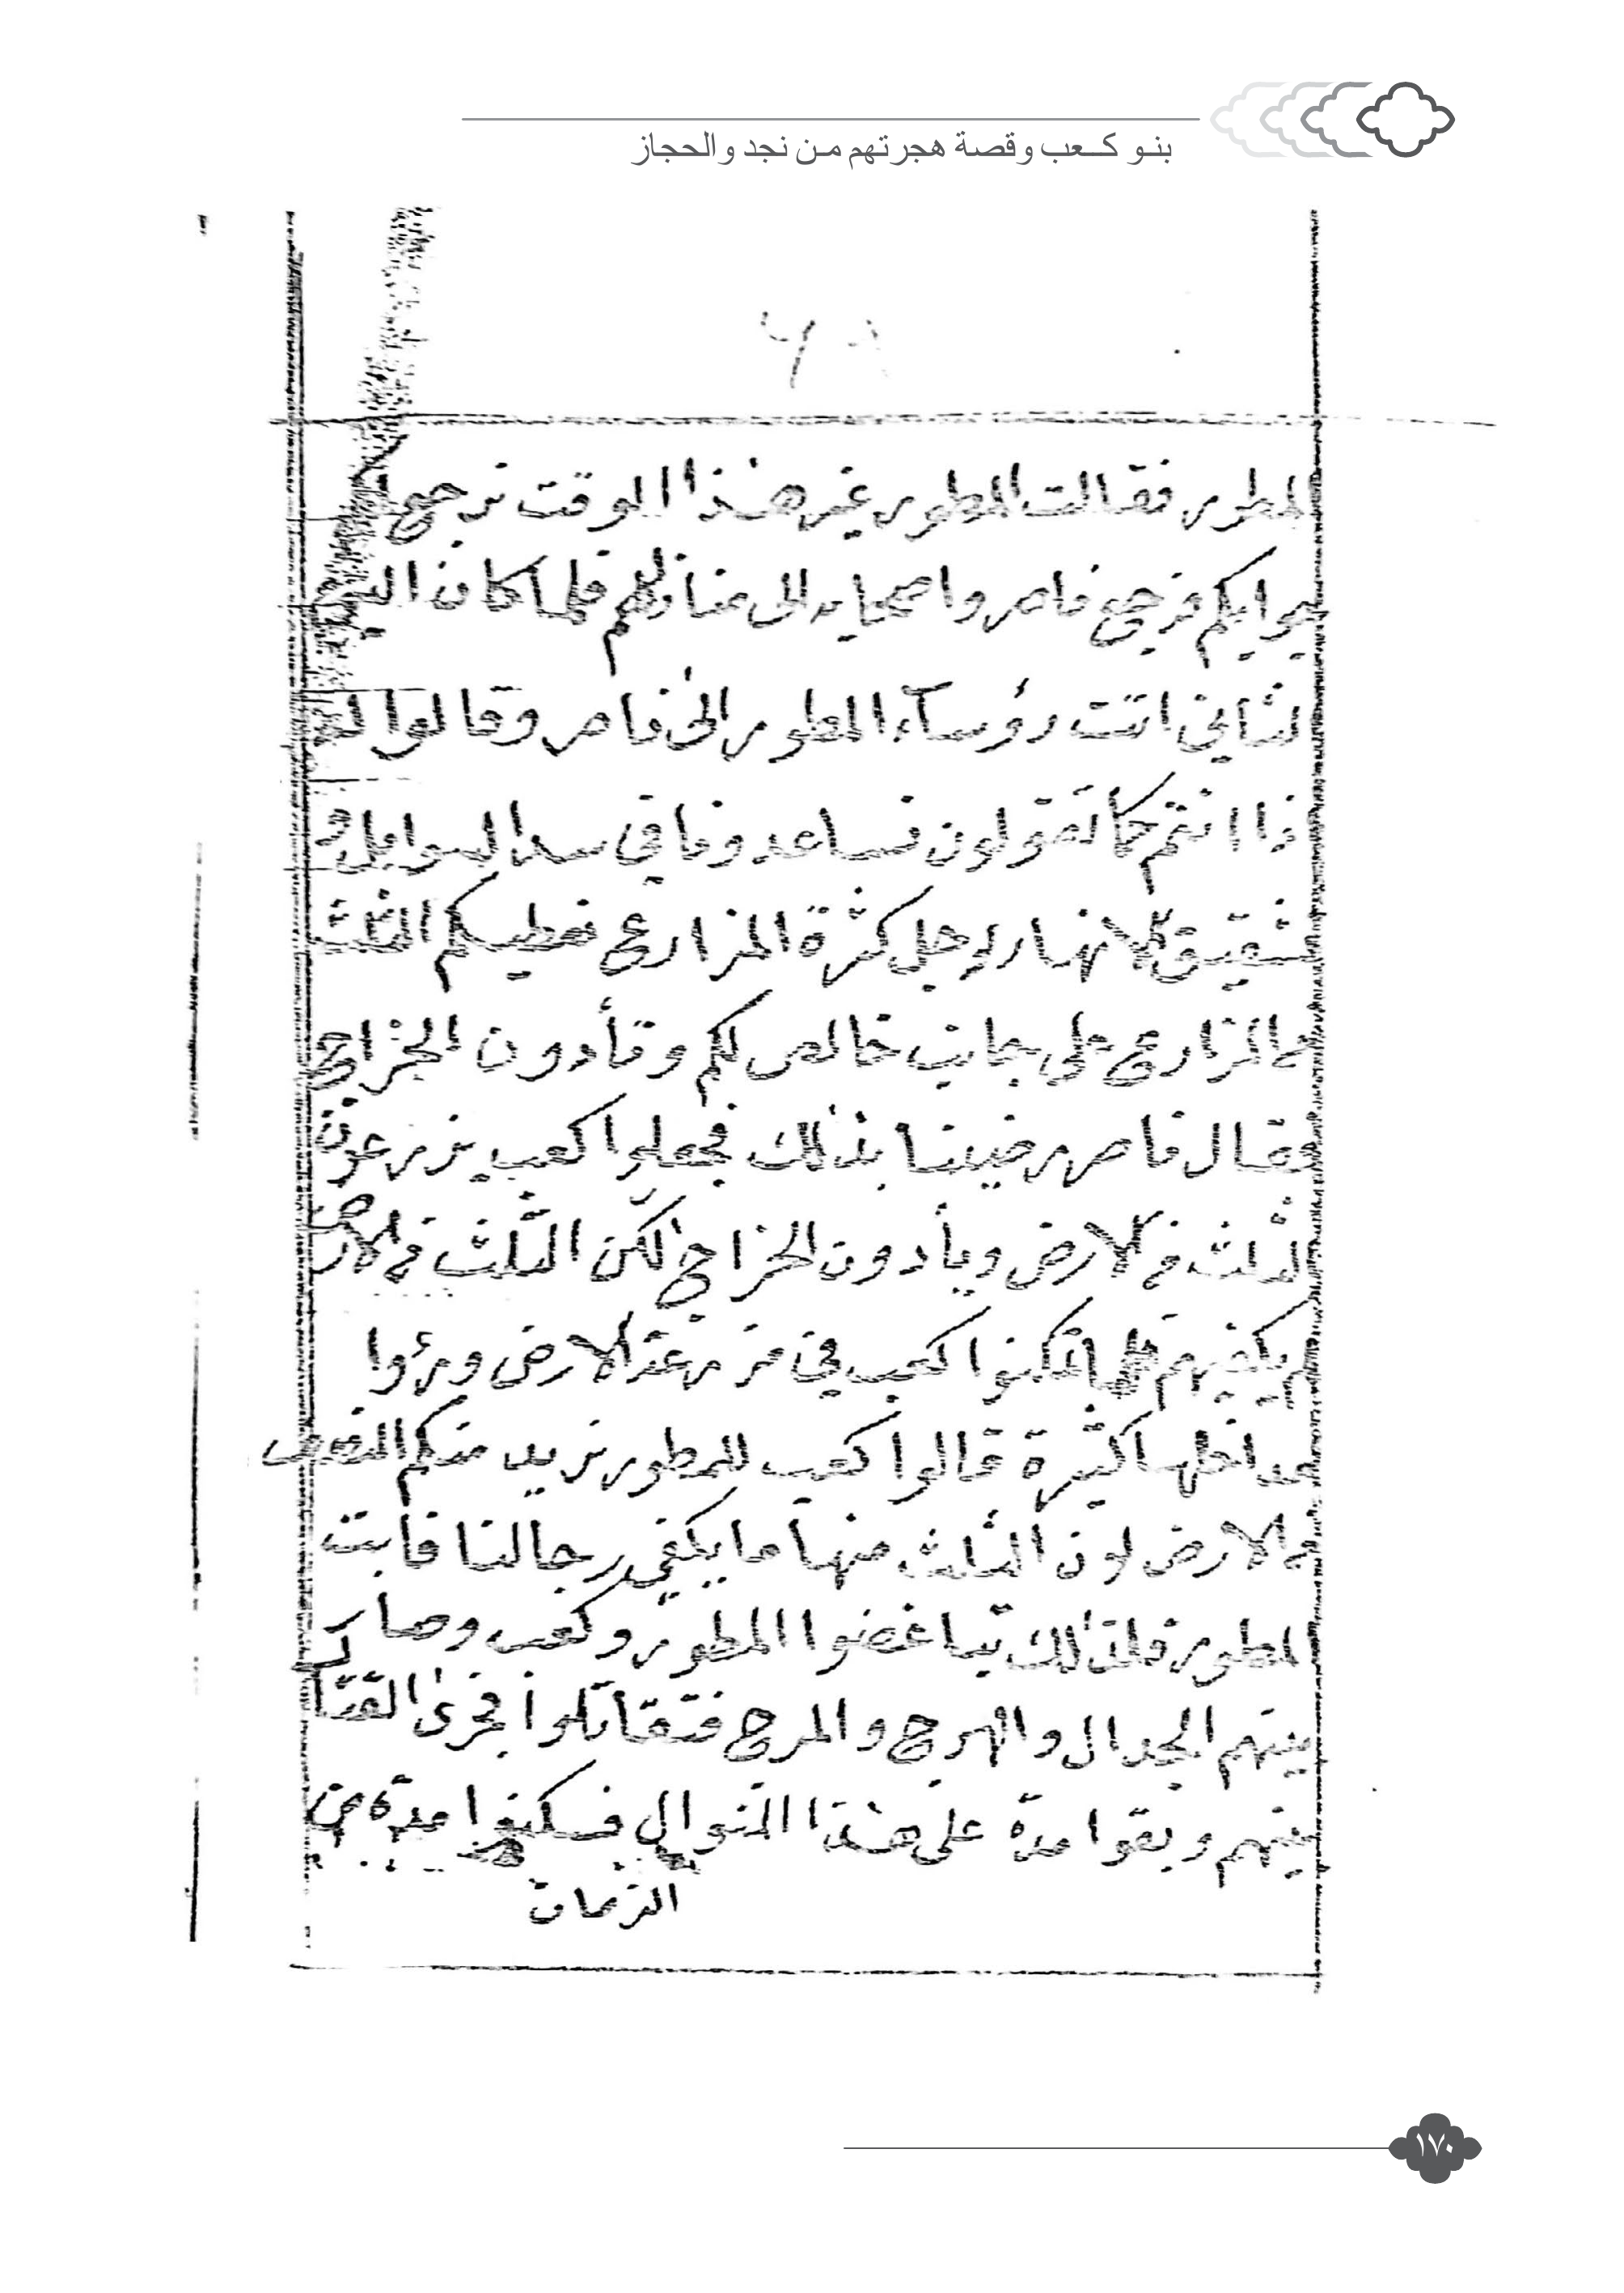 بنو كعب وقصة هجرتهم من نجد والحجاز
المطور فقالت المطور غير هذا الوقت نرجع
جوابكم فرجع ناصر واصحابه الى منازلهم فلما كان اليوم
لثاني اتت رؤسآء المطور الى ناصر وقالوا له
اذا انتم كما تقولون تساعدونا في سد السوابل و
تشقيق الانهار لاجل كثرة المزارع نعطيكم الثلث
المزارع على جانب خالص لكم وتأدون الخراج
فقال ناصر رضينا بذلك فجعلوا كعب يزرعون
الثلث في الارض ويأدون الخراج لكن الثلث في الارض
لم يكفيهم فلما تمكنوا كعب في مزرعة الارض ورؤا
مداخلها كثيرة قالوا كعب للمطور نريد منكم النصف
الارض لون الثلث منها ما يكفي رجالنا فابت
لمطور فلذلك تباغضوا المطور وكعب وصار
بينهم الجدال والهرج والمرج فتقاتلوا فجرى القتال
بينهم وبقوا مدة على هذا المنوال فسكنوا مدة من
الزمان
١٧٠